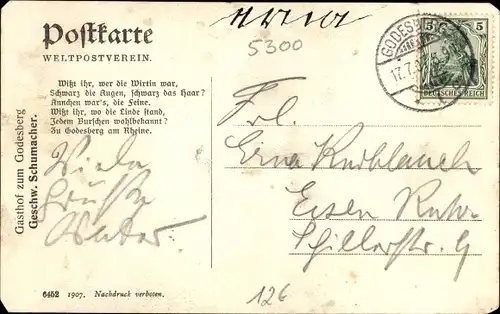 Postkarte
WELTPOSTVEREIN.
5300
GODESBERG
17.7.
5 5
DEUTSCHES REICH
Wißt ihr, wer die Wirtin war,
Schwarz die Augen, schwarz das Haar?
Annchen war's, die Feine.
Wißt ihr, wo die Linde stand,
Jedem Burschen wohlbekannt?
Zu Godesberg am Rheine.
Gasthof zum Godesberg
Geschw. Schumacher.
Viele
Grüße
Frl.
Erna Knoblauch
Essen Ruhr
Schillerstr. 9
126
6452 1907. Nachdruck verboten.